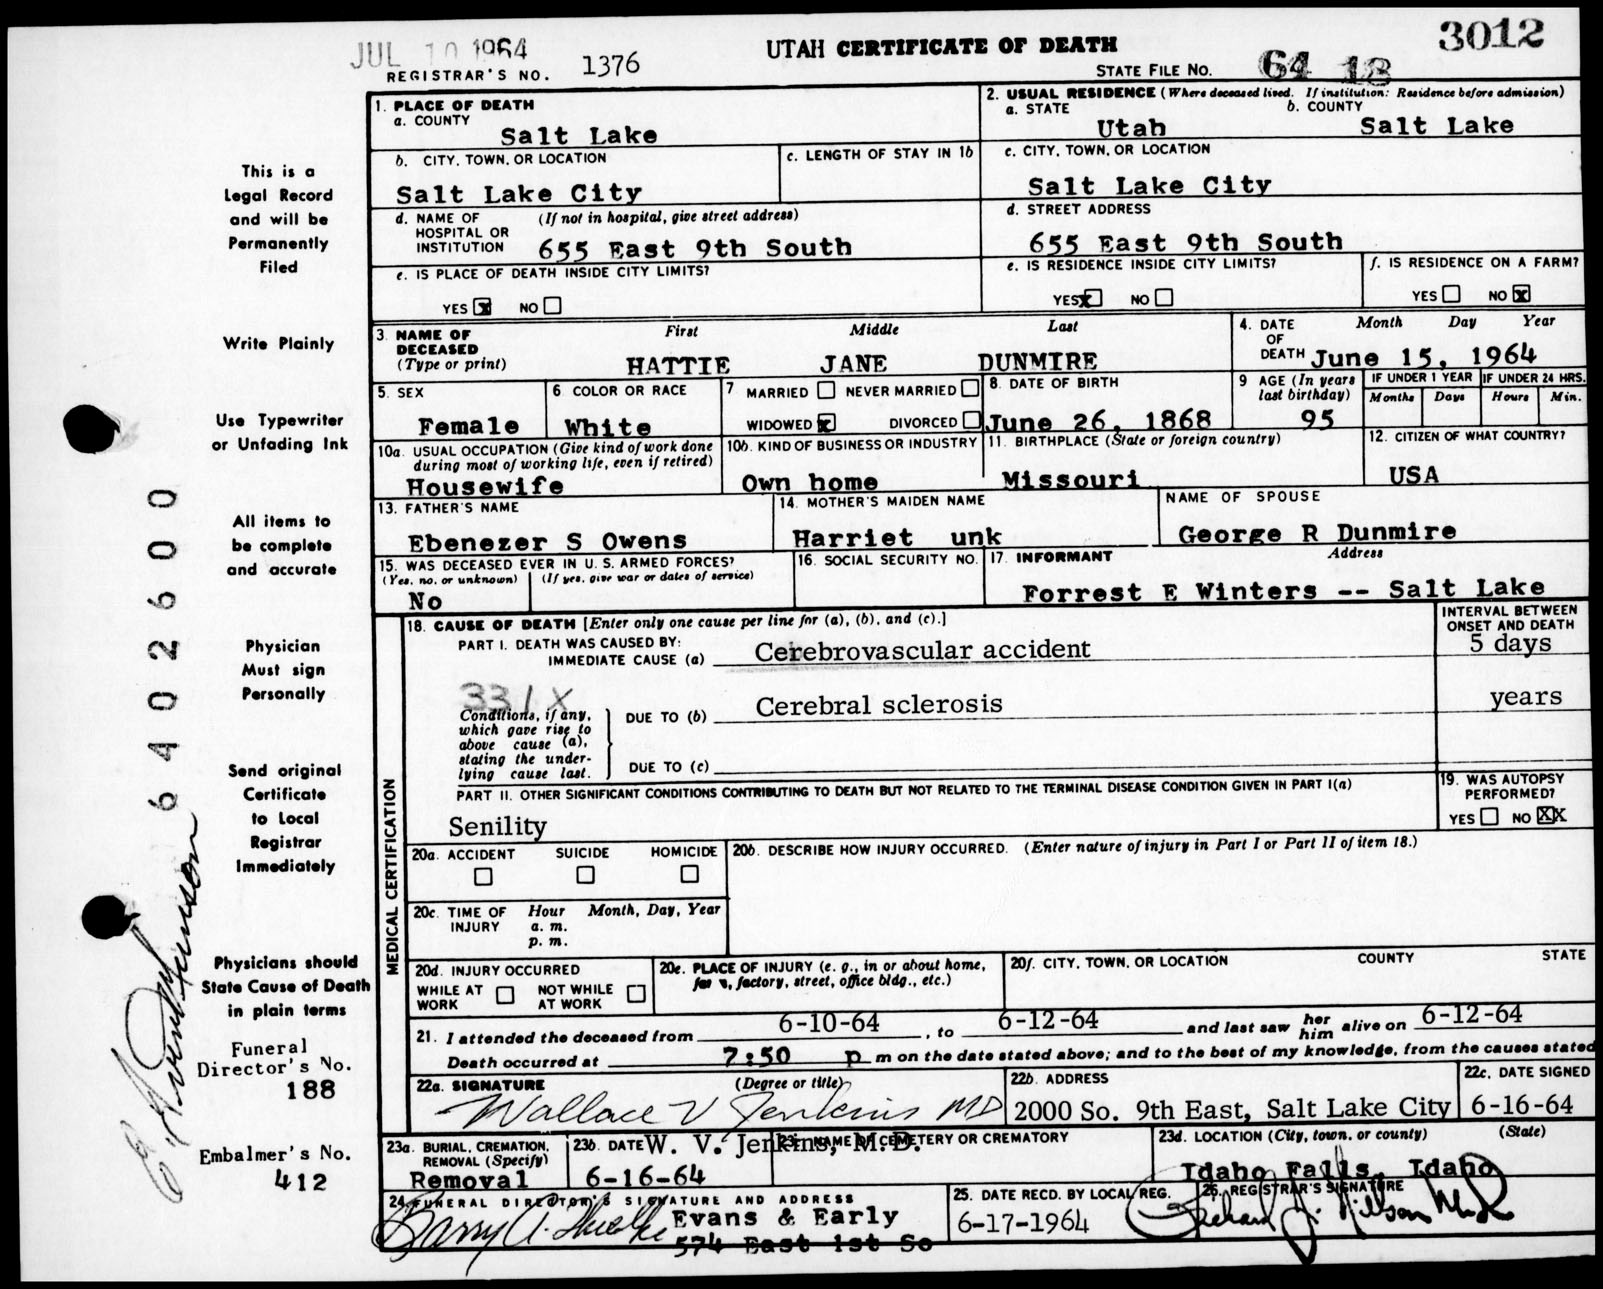 JUL 10 1964
REGISTRAR'S NO. 1376
UTAH CERTIFICATE OF DEATH
3012
STATE FILE NO. 64 18
This is a
Legal Record
and will be
Permanently
Filed
Write Plainly
Use Typewriter
or Unfading Ink
All items to
be complete
and accurate
Physician
Must sign
Personally
Send original
Certificate
to Local
Registrar
Immediately
Physicians should
State Cause of Death
in plain terms
Funeral
Director's No.
188
Embalmer's No.
412
6402600
1. PLACE OF DEATH
a. COUNTY
Salt Lake
2. USUAL RESIDENCE (Where deceased lived. If institution: Residence before admission)
a. STATE b. COUNTY
Utah Salt Lake
b. CITY, TOWN, OR LOCATION
Salt Lake City
c. LENGTH OF STAY IN 1b
c. CITY, TOWN, OR LOCATION
Salt Lake City
d. NAME OF (If not in hospital, give street address)
HOSPITAL OR
INSTITUTION 655 East 9th South
d. STREET ADDRESS
655 East 9th South
e. IS PLACE OF DEATH INSIDE CITY LIMITS?
YES X NO
e. IS RESIDENCE INSIDE CITY LIMITS?
YES X NO
f. IS RESIDENCE ON A FARM?
YES NO X
3. NAME OF
DECEASED
(Type or print)
First Middle Last
HATTIE JANE DUNMIRE
4. DATE Month Day Year
OF
DEATH June 15, 1964
5. SEX
Female
6. COLOR OR RACE
White
7 MARRIED NEVER MARRIED
WIDOWED X DIVORCED
8. DATE OF BIRTH
June 26, 1868
9 AGE (In years
last birthday)
95
IF UNDER 1 YEAR IF UNDER 24 HRS.
Months Days Hours Min.
10a. USUAL OCCUPATION (Give kind of work done
during most of working life, even if retired)
Housewife
10b. KIND OF BUSINESS OR INDUSTRY
Own home
11. BIRTHPLACE (State or foreign country)
Missouri
12. CITIZEN OF WHAT COUNTRY?
USA
13. FATHER'S NAME
Ebenezer S Owens
14. MOTHER'S MAIDEN NAME
Harriet unk
NAME OF SPOUSE
George R Dunmire
15. WAS DECEASED EVER IN U. S. ARMED FORCES?
(Yes, no, or unknown) (If yes, give war or dates of service)
No
16. SOCIAL SECURITY NO.
17. INFORMANT Address
Forrest E Winters -- Salt Lake
MEDICAL CERTIFICATION
18. CAUSE OF DEATH [Enter only one cause per line for (a), (b), and (c).]
INTERVAL BETWEEN
ONSET AND DEATH
PART I. DEATH WAS CAUSED BY:
IMMEDIATE CAUSE (a) Cerebrovascular accident 5 days
331X
Conditions, if any,
which gave rise to
above cause (a),
stating the under-
lying cause last.
DUE TO (b) Cerebral sclerosis years
DUE TO (c)
PART II. OTHER SIGNIFICANT CONDITIONS CONTRIBUTING TO DEATH BUT NOT RELATED TO THE TERMINAL DISEASE CONDITION GIVEN IN PART I(a)
Senility
19. WAS AUTOPSY
PERFORMED?
YES NO XX
20a. ACCIDENT SUICIDE HOMICIDE
20b. DESCRIBE HOW INJURY OCCURRED. (Enter nature of injury in Part I or Part II of item 18.)
20c. TIME OF Hour Month, Day, Year
INJURY a. m.
p. m.
20d. INJURY OCCURRED
WHILE AT NOT WHILE
WORK AT WORK
20e. PLACE OF INJURY (e. g., in or about home,
factory, street, office bldg., etc.)
20f. CITY, TOWN, OR LOCATION COUNTY STATE
21. I attended the deceased from 6-10-64, to 6-12-64 and last saw her him alive on 6-12-64
Death occurred at 7:50 p m on the date stated above; and to the best of my knowledge, from the causes stated
22a. SIGNATURE (Degree or title)
Wallace V Jenkins MD
22b. ADDRESS
2000 So. 9th East, Salt Lake City
22c. DATE SIGNED
6-16-64
23a. BURIAL, CREMATION,
REMOVAL (Specify)
Removal
23b. DATE
6-16-64
W. V. Jenkins, M.D.
23c. NAME OF CEMETERY OR CREMATORY
23d. LOCATION (City, town, or county) (State)
Idaho Falls, Idaho
24. FUNERAL DIRECTOR'S SIGNATURE AND ADDRESS
Evans & Early
574 East 1st So
25. DATE RECD. BY LOCAL REG.
6-17-1964
26. REGISTRAR'S SIGNATURE